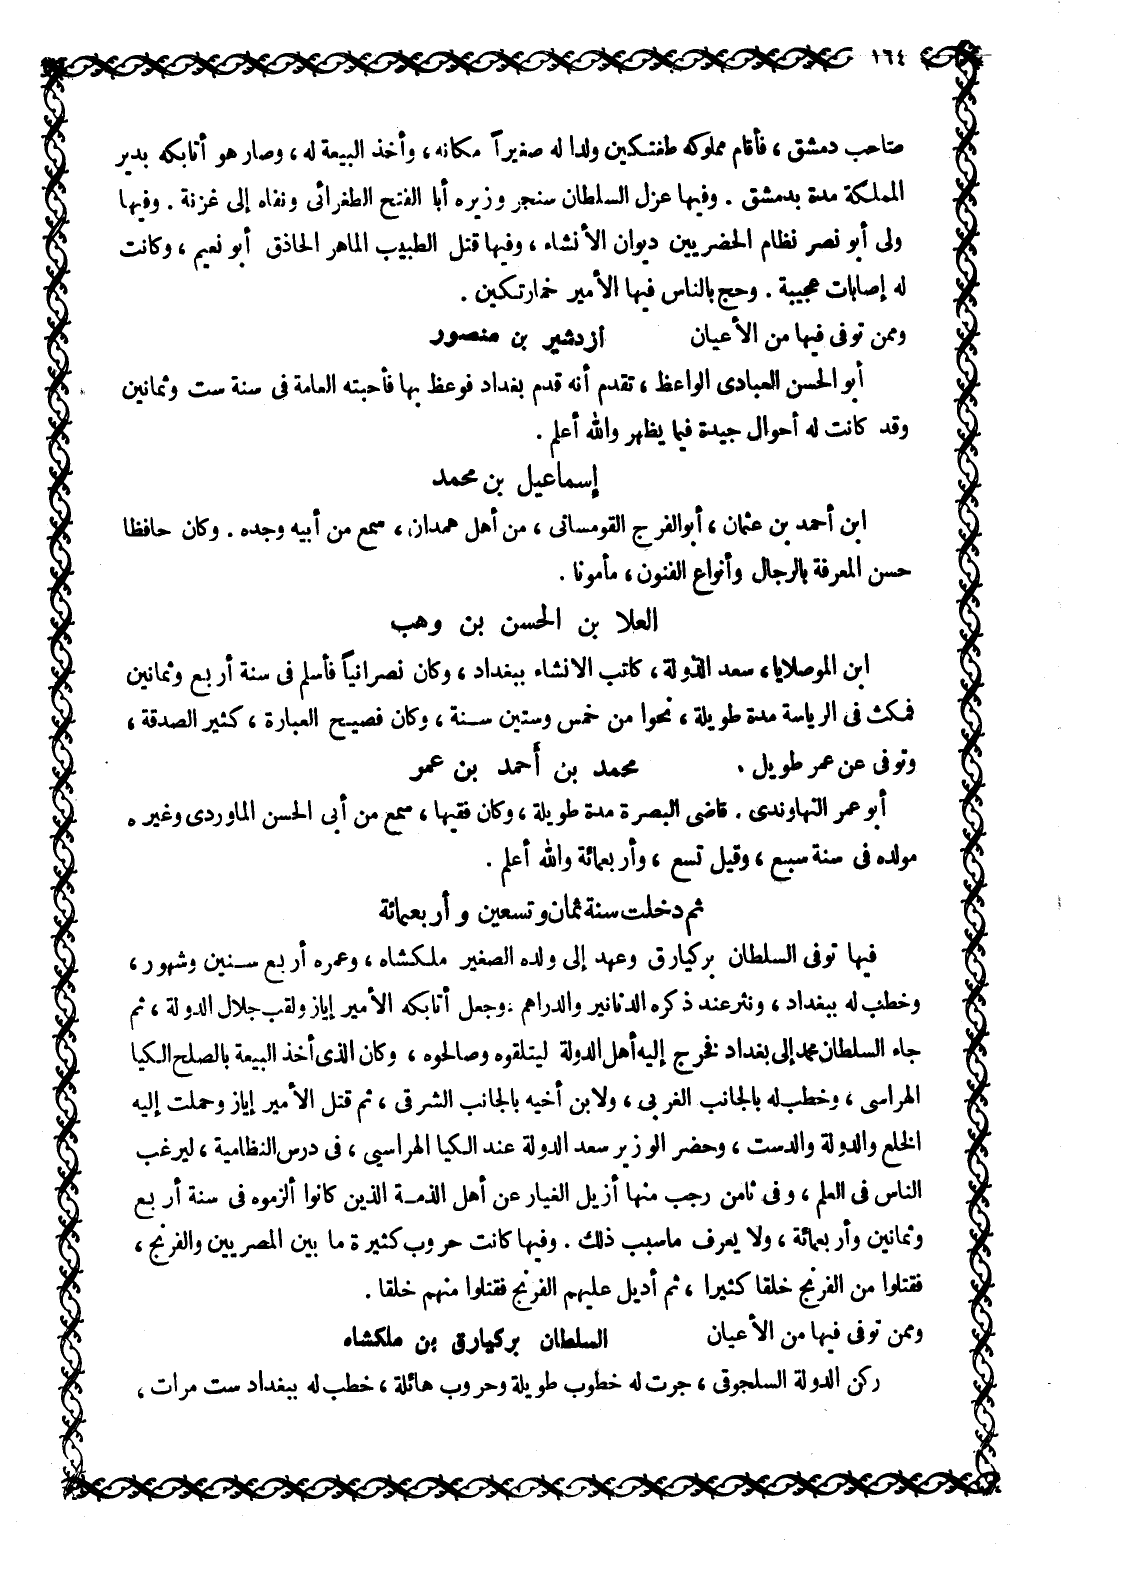 ١٦٤
صاحب دمشق ، فأقام مملوكه طغتكين ولدا له صغيراً مكانه ، وأخذ البيعة له ، وصار هو أتابكه يدير
المملكة مدة بدمشق . وفيها عزل السلطان سنجر وزيره أبا الفتح الطغرائى ونفاه إلى غزنة . وفيها
ولى أبو نصر نظام الحضريين ديوان الأنشاء ، وفيها قتل الطبيب الماهر الحاذق أبو نعيم ، وكانت
له إصابات عجيبة . وحج بالناس فيها الأمير خمارتكين .
وممن توفى فيها من الأعيان أزدشير بن منصور
أبو الحسن العبادى الواعظ ، تقدم أنه قدم بغداد فوعظ بها فأحبته العامة فى سنة ست وثمانين
وقد كانت له أحوال جيدة فيما يظهر والله أعلم .
إسماعيل بن محمد
ابن أحمد بن عثمان ، أبو الفرج القومسانى ، من أهل همدان ، سمع من أبيه وجده . وكان حافظا
حسن المعرفة بالرجال وأنواع الفنون ، مأمونا .
العلا بن الحسن بن وهب
ابن الموصلايا ، سعد الدولة ، كاتب الانشاء ببغداد ، وكان نصرانياً فأسلم فى سنة أربع وثمانين
فمكث فى الرياسة مدة طويلة ، نحوا من خمس وستين سنة ، وكان فصيح العبارة ، كثير الصدقة ،
وتوفى عن عمر طويل . محمد بن أحمد بن عمر
أبو عمر النهاوندى . قاضى البصرة مدة طويلة ، وكان فقيها ، سمع من أبى الحسن الماوردى وغيره
مولده فى سنة سبع ، وقيل تسع ، وأربعمائة والله أعلم .
ثم دخلت سنة ثمان وتسعين وأربعمائة
فيها توفى السلطان بركيارق وعهد إلى ولده الصغير ملكشاه ، وعمره أربع سنين وشهور ،
وخطب له ببغداد ، ونثر عند ذكره الدنانير والدراهم ، وجعل أتابكه الأمير إياز ولقب جلال الدولة ، ثم
جاء السلطان محمد إلى بغداد فخرج إليه أهل الدولة ليتلقوه وصالحوه ، وكان الذى أخذ البيعة بالصلح الكيا
الهراسى ، وخطب له بالجانب الغربى ، ولابن أخيه بالجانب الشرقى ، ثم قتل الأمير إياز وحملت إليه
الخلع والدولة والدست ، وحضر الوزير سعد الدولة عند الكيا الهراسى ، فى درس النظامية ، ليرغب
الناس فى العلم ، وفى ثامن رجب منها أزيل الغيار عن أهل الذمة الذين كانوا ألزموه فى سنة أربع
وثمانين وأربعمائة ، ولا يعرف ما سبب ذلك . وفيها كانت حروب كثيرة ما بين المصريين والفرنج ،
فقتلوا من الفرنج خلقا كثيرا ، ثم أديل عليهم الفرنج فقتلوا منهم خلقا .
وممن توفى فيها من الأعيان السلطان بركيارق بن ملكشاه
ركن الدولة السلجوقى ، جرت له خطوب طويلة وحروب هائلة ، خطب له ببغداد ست مرات ،